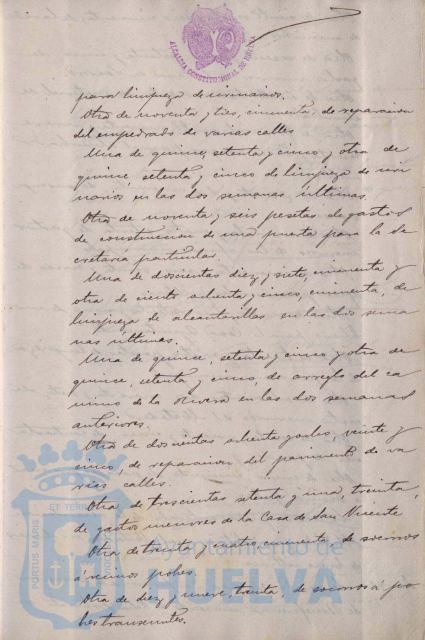 ALCALDIA CONSTITUCIONAL DE HUELVA
para limpieza de urinarios.
Otra de noventa y tres, cincuenta, de reparacion
del empedrado de varias calles
Una de quince, setenta y cinco y otra de
quince, setenta y cinco de limpieza de uri
narios en las dos semanas últimas.
Otra de noventa y seis pesetas de gastos
de construccion de una puerta para la Se
cretaria particular.
Una de doscientas diez y siete, cincuenta y
otra de ciento ochenta y cinco, cincuenta, de
limpieza de alcantarillas en las dos sema
nas últimas.
Una de quince, setenta y cinco y otra de
quince, setenta y cinco, de arreglo del ca
mino de la olivera en las dos semanas
anteriores.
Otra de doscientas ochenta y ocho, veinte y
cinco, de reparacion del pavimento de va
rias calles.
Otra de trescientas setenta y una, treinta,
de gastos menores de la Casa de San Vicente
Otra de treinta y cuatro, cincuenta de socorros
á vecinos pobres.
Otra de diez y nueve, treinta, de socorros á po
bres transeuntes.
PORTUS MARIS ET TERRAE
Ayuntamiento de
HUELVA